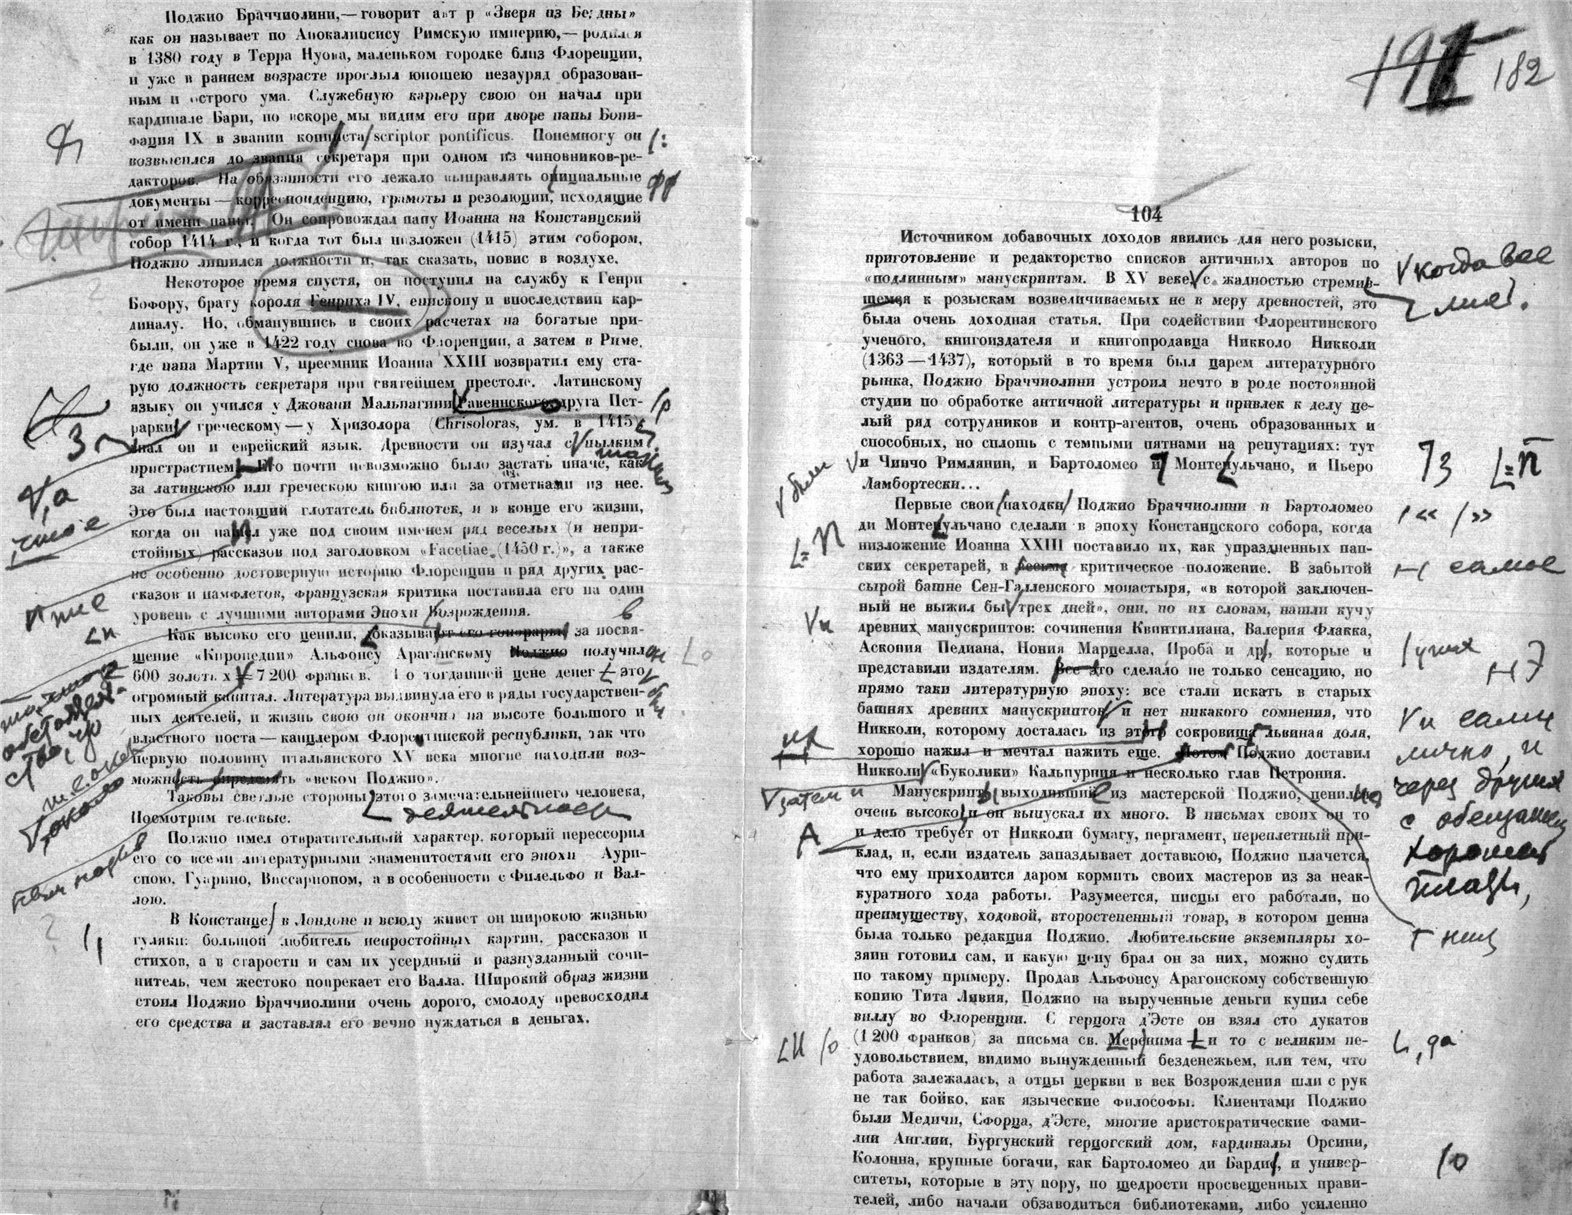 Поджио Браччиолини,— говорит авт р «Зверя из Бездны»
как он называет по Апокалипсису Римскую империю,— родился
в 1380 году в Терра Нуова, маленьком городке близ Флоренции,
и уже в раннем возрасте прослыл юношею незауряд образован-
ным и острого ума. Служебную карьеру свою он начал при
кардинале Бари, но вскоре мы видим его при дворе папы Бони-
фация IX в звании копииста/scriptor pontificus. Понемногу он
возвысился до звания секретаря при одном из чиновников-ре-
дакторов. На обязанности его лежало выправлять официальные
документы — корреспонденцию, грамоты и резолюции, исходящие
от имени папы. Он сопровождал папу Иоанна на Констанцский
собор 1414 г., и когда тот был низложен (1415) этим собором,
Поджио лишился должности и, так сказать, повис в воздухе.
Некоторое время спустя, он поступил на службу к Генри
Бофору, брату короля Генриха IV, епископу и впоследствии кар-
диналу. Но, обманувшись в своих расчетах на богатые при-
были, он уже в 1422 году снова во Флоренции, а затем в Риме,
где папа Мартин V, преемник Иоанна XXIII возвратил ему ста-
рую должность секретаря при святейшем престоле. Латинскому
языку он учился у Джовани Мальпагини Равеннского друга Пет-
рарки, греческому — у Хризолора (Chrisoloras, ум. в 1415
Знал он и еврейский язык. Древности он изучал с пылким
пристрастием. Его почти невозможно было застать иначе, как
за латинскою или греческою книгою или за отметками из нее.
Это был настоящий глотатель библиотек, и в конце его жизни,
когда он нашел уже под своим именем ряд веселых (и непри-
стойных, рассказов под заголовком «Facetiae (1450 г.)», а также
не особенно достоверную историю Флоренции и ряд других рас-
сказов и памфлетов, французская критика поставила его на один
уровень с лучшими авторами Эпохи Возрождения.
Как высоко его ценили, показывают его гонорары за посвя-
щение «Киропедии» Альфонсу Араганскому Поджио получил
600 золотых = 7 200 франков. По тогдашней цене денег это
огромный капитал. Литература выдвинула его в ряды государствен-
ных деятелей, и жизнь свою он окончил на высоте большого и
властного поста — канцлером Флорентинской республики, так что
первую половину итальянского XV века многие находили воз-
можность определять «веком Поджио».
Таковы светлые стороны этого замечательнейшего человека,
деятельности
Посмотрим теневые.
Поджио имел отвратительный характер, который перессорил
его со всеми литературными знаменитостями его эпохи — Аури-
спою, Гуарино, Виссарионом, а в особенности с Филельфо и Вал-
лою.
В Констанце, в Лондоне и всюду живет он широкою жизнью
гуляки: большой любитель непристойных картин, рассказов и
стихов, а в старости и сам их усердный и разнузданный сочи-
нитель, чем жестоко попрекает его Валла. Широкий образ жизни
стоил Поджио Браччиолини очень дорого, смолоду превосходил
его средства и заставлял его вечно нуждаться в деньгах.
182
104
Источником добавочных доходов явились для него розыски,
приготовление и редакторство списков античных авторов по
«подлинным» манускриптам. В XV веке, с жадностью стремив-
шемся к розыскам возвеличиваемых не в меру древностей, это
когда все
была очень доходная статья. При содействии Флорентинского
ученого, книгоиздателя и книгопродавца Никколо Никколи
(1363—1437), который в то время был царем литературного
рынка, Поджио Браччиолини устроил нечто в роде постоянной
студии по обработке античной литературы и привлек к делу це-
лый ряд сотрудников и контр-агентов, очень образованных и
способных, но сплошь с темными пятнами на репутациях: тут
были
и Чинчо Римлянин, и Бартоломео и Монтепульчано, и Пьеро
Ламбортески...
Первые свои находки Поджио Браччиолини и Бартоломео
ди Монтепульчано сделали в эпоху Констанцского собора, когда
низложение Иоанна XXIII поставило их, как упраздненных пап-
ских секретарей, в весьма критическое положение. В забытой
самое
сырой башне Сен-Галленского монастыря, «в которой заключен-
ный не выжил бы трех дней», они, по их словам, нашли кучу
древних манускриптов: сочинения Квинтилиана, Валерия Флакка,
Аскония Педиана, Нония Марцелла, Проба и др., которые и
представили издателям. Все это сделало не только сенсацию, но
прямо таки литературную эпоху: все стали искать в старых
башнях древних манускриптов, и нет никакого сомнения, что
Никколи, которому досталась из этого сокровища львиная доля,
хорошо нажил и мечтал нажить еще. Потом Поджио доставил
Никколи «Буколики» Кальпурния и несколько глав Петрония.
и сами
лично, и
через других
с обещанием
хорошей
платы,
затем и
Манускрипты выходившие из мастерской Поджио, ценились
очень высоко, и он выпускал их много. В письмах своих он то
и дело требует от Никколи бумагу, пергамент, переплетный при-
клад, и, если издатель запаздывает доставкою, Поджио плачется,
что ему приходится даром кормить своих мастеров из за неак-
куратного хода работы. Разумеется, писцы его работали, по
преимуществу, ходовой, второстепенный товар, в котором ценна
была только редакция Поджио. Любительские экземпляры хо-
зяин готовил сам, и какую цену брал он за них, можно судить
по такому примеру. Продав Альфонсу Арагонскому собственную
копию Тита Ливия, Поджио на вырученные деньги купил себе
виллу во Флоренции. С герцога д'Эсте он взял сто дукатов
(1 200 франков) за письма св. Меронима и то с великим не-
, да
удовольствием, видимо вынужденный безденежьем, или тем, что
работа залежалась, а отцы церкви в век Возрождения шли с рук
не так бойко, как языческие философы. Клиентами Поджио
были Медичи, Сфорца, д'Эсте, многие аристократические фами-
лии Англии, Бургунский герцогский дом, кардиналы Орсини,
Колонна, крупные богачи, как Бартоломео ди Бардис, и универ-
ситеты, которые в эту пору, по щедрости просвещенных прави-
телей, либо начали обзаводиться библиотеками, либо усиленно